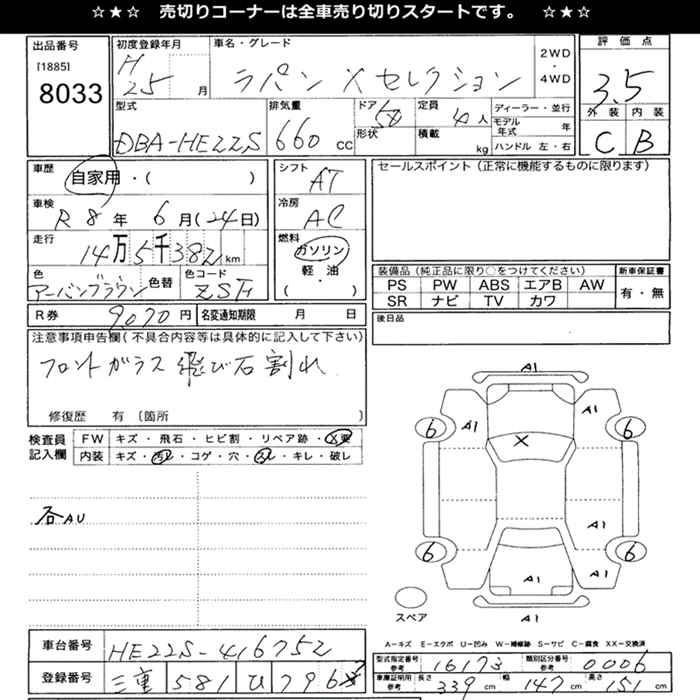 ☆★☆ 売切りコーナーは全車売り切りスタートです。 ☆★☆
出品番号 初度登録年月 車名・グレード 2WD・4WD 評価点
[1885] 8033 H 25 月 ラパン Xセレクション 3.5
型式 排気量 ドア 定員 ディーラー・並行 外装 内装
DBA-HE22S 660 cc 5d 4人 モデル年式 年 C B
形状 積載 kg ハンドル 左・右
車歴 自家用・( ) シフト AT セールスポイント(正常に機能するものに限ります)
車検 R8年 6月(24日) 冷房 AC
走行 14万5千382km 燃料 ガソリン
軽・油
( )
色 アーバンブラウン 色替 色コード ZSF 装備品(純正品に限り○をつけてください) 新車保証書
PS PW ABS エアB AW 有・無
SR ナビ TV カワ
R券 9070円 名変通知期限 月 日 後日品
注意事項申告欄(不具合内容等は具体的に記入して下さい)
フロントガラス 飛び石割れ
修復歴 有 〔箇所 〕
検査員記入欄 FW キズ・飛石・ヒビ割・リペア跡・X要
内装 キズ・汚レ・コゲ・穴・スレ・キレ・破レ
各AU
A1
A1 A1
6 6
X
A1
6 6
A1 A1
A1
スペア
A-キズ E-エクボ U-凹み W-補修跡 S-サビ C-腐食 XX-交換済
車台番号 HE22S-416752 型式指定番号 参考 16173 類別区分番号 参考 0006
登録番号 三重 581 ひ 796 車庫証明用 参考 長さ 339 cm 幅 147 cm 高さ 151 cm